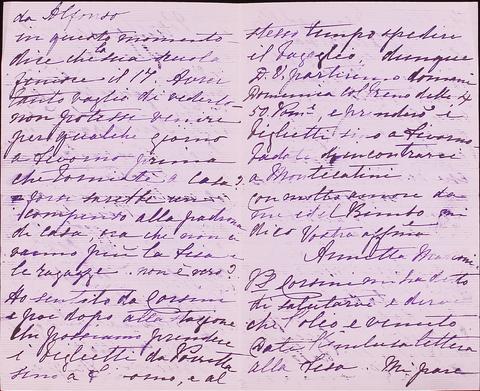 da Alfonso
in questo momento
dice che la sua scuola
finisce il 17. Avrei
tanto voglia di vederlo
non potesse venire
per qualche giorno
a Livorno prima
che torniate a casa?
sarebbe un
compenso alla padrona
di casa ora che non
vanno più la Lisa e
le ragazze. non è vero?
Ho sentito da Corsini
e poi dopo alla stazione
che possiamo prendere
i biglietti da Porretta
sino a Livorno, e al
stesso tempo spedire
il bagaglio, dunque
D.V. partiremo domani
Domenica col treno delle 4
50 Pom. e prenderò i
biglietti sino a Livorno
badate d'incontrarci
a Montecatini
con molto amore da
me ed il Bimbo mi
dico Vostra affma
Annetta
PS Corsini mi ha detto
di salutarvi e dire
che è venuto
Date l'inclusa lettera
alla Lisa Mi pare